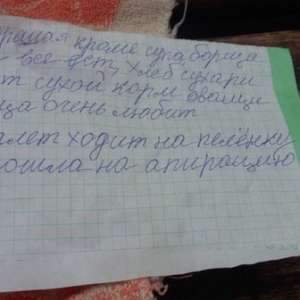 кроме супа борща
все ест, хлеб сухари
ет сухой корм овощи
ца очень любит
алет ходит на пелёнку
ошла на апирацию